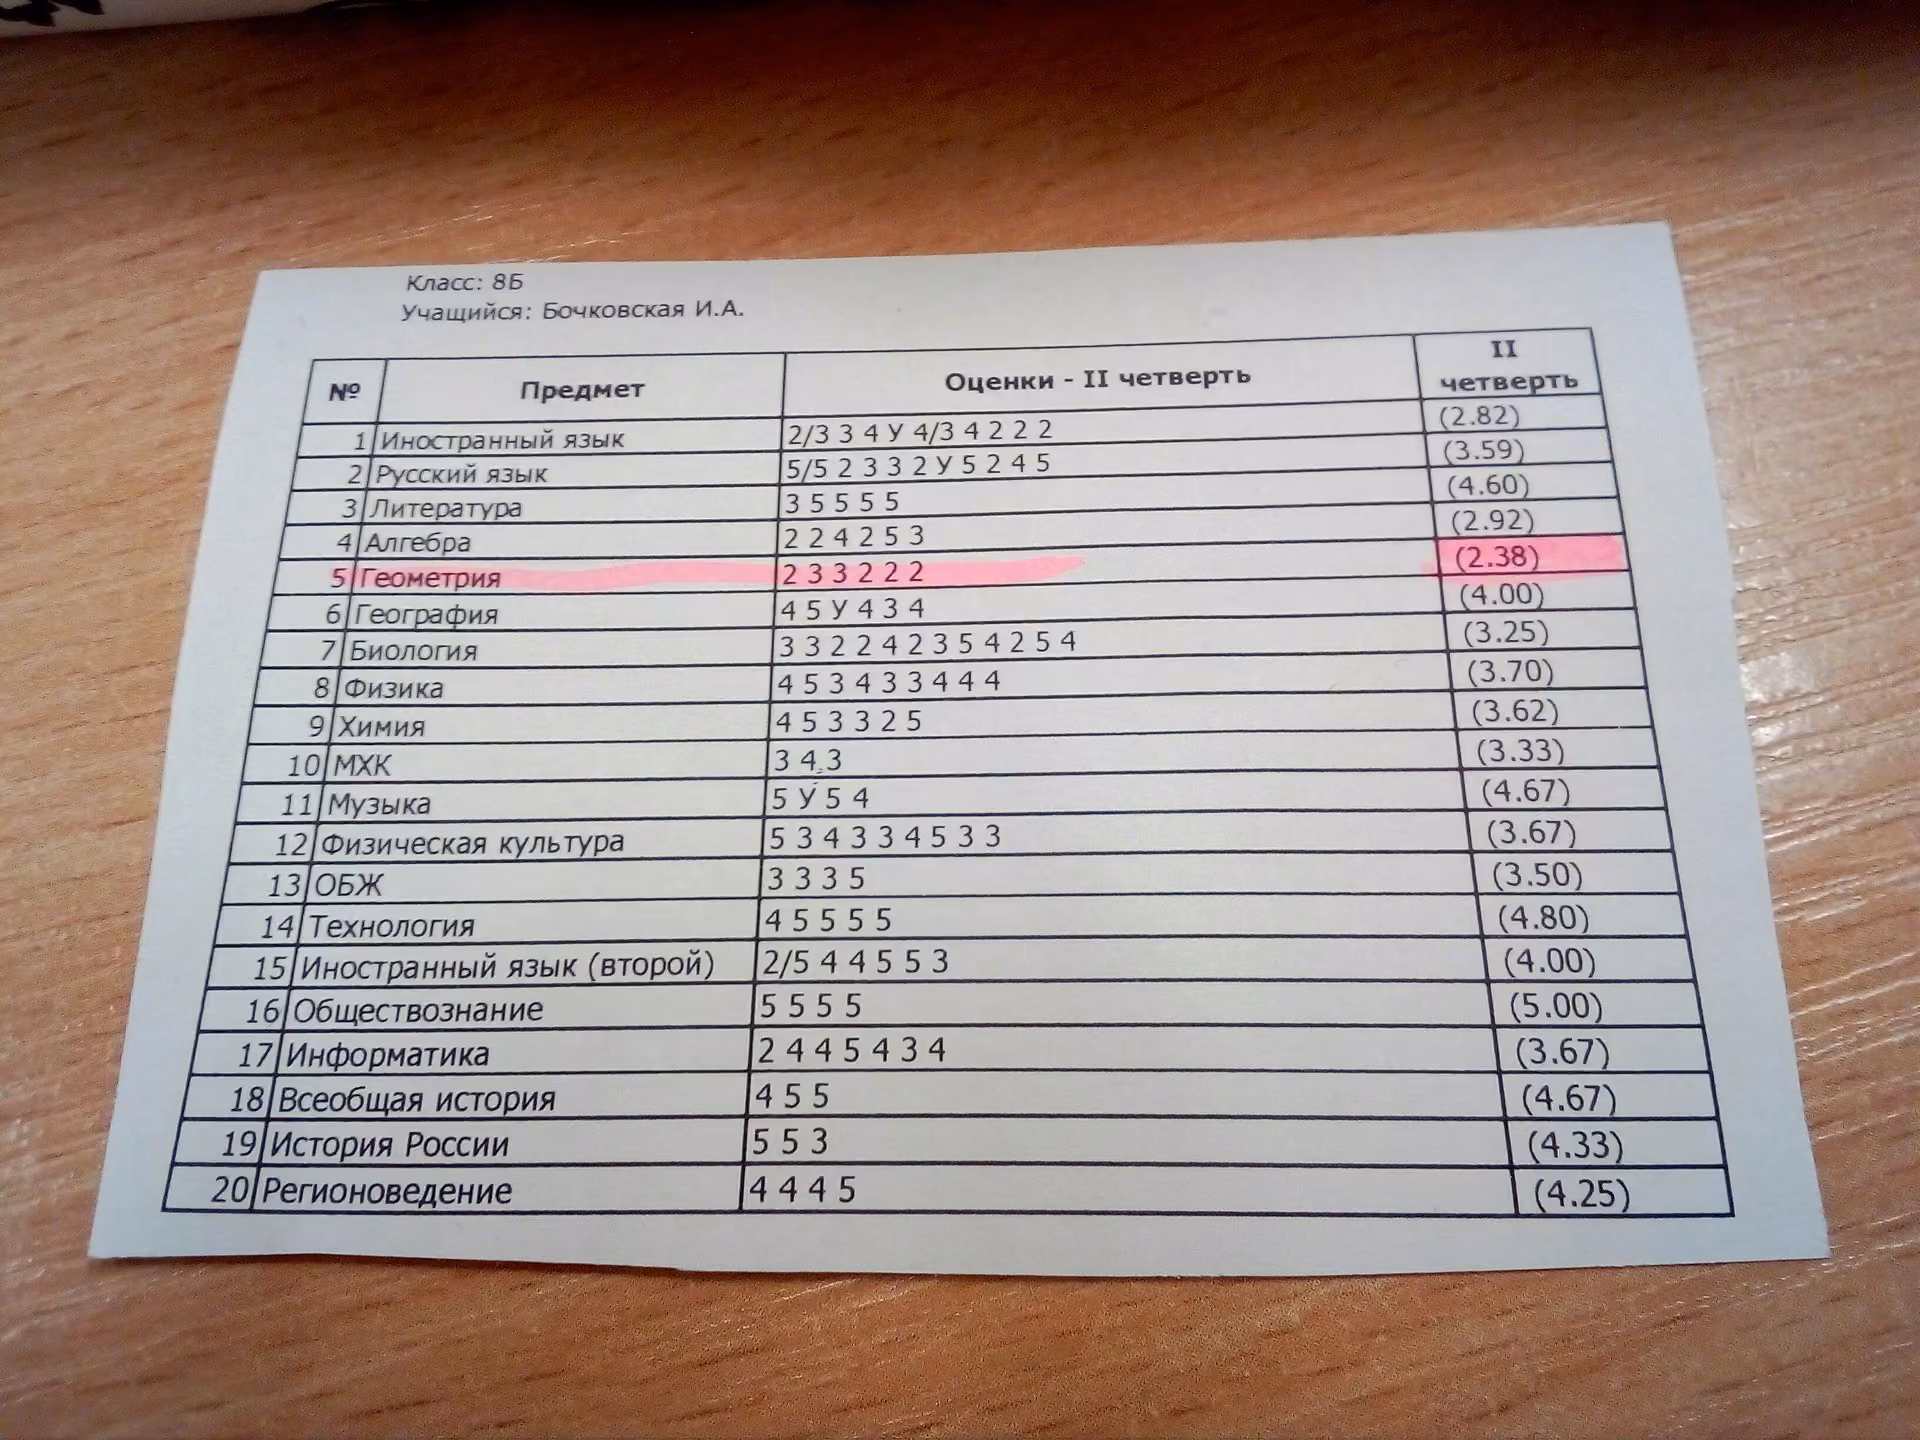 Класс: 8Б
Учащийся: Бочковская И.А.
№ Предмет Оценки - II четверть II четверть
1 Иностранный язык 2/3 3 4 У 4/3 4 2 2 2 (2.82)
2 Русский язык 5/5 2 3 3 2 У 5 2 4 5 (3.59)
3 Литература 3 5 5 5 5 (4.60)
4 Алгебра 2 2 4 2 5 3 (2.92)
5 Геометрия 2 3 3 2 2 2 (2.38)
6 География 4 5 У 4 3 4 (4.00)
7 Биология 3 3 2 2 4 2 3 5 4 2 5 4 (3.25)
8 Физика 4 5 3 4 3 3 4 4 4 (3.70)
9 Химия 4 5 3 3 2 5 (3.62)
10 МХК 3 4 3 (3.33)
11 Музыка 5 У 5 4 (4.67)
12 Физическая культура 5 3 4 3 3 4 5 3 3 (3.67)
13 ОБЖ 3 3 3 5 (3.50)
14 Технология 4 5 5 5 5 (4.80)
15 Иностранный язык (второй) 2/5 4 4 5 5 3 (4.00)
16 Обществознание 5 5 5 5 (5.00)
17 Информатика 2 4 4 5 4 3 4 (3.67)
18 Всеобщая история 4 5 5 (4.67)
19 История России 5 5 3 (4.33)
20 Регионоведение 4 4 4 5 (4.25)